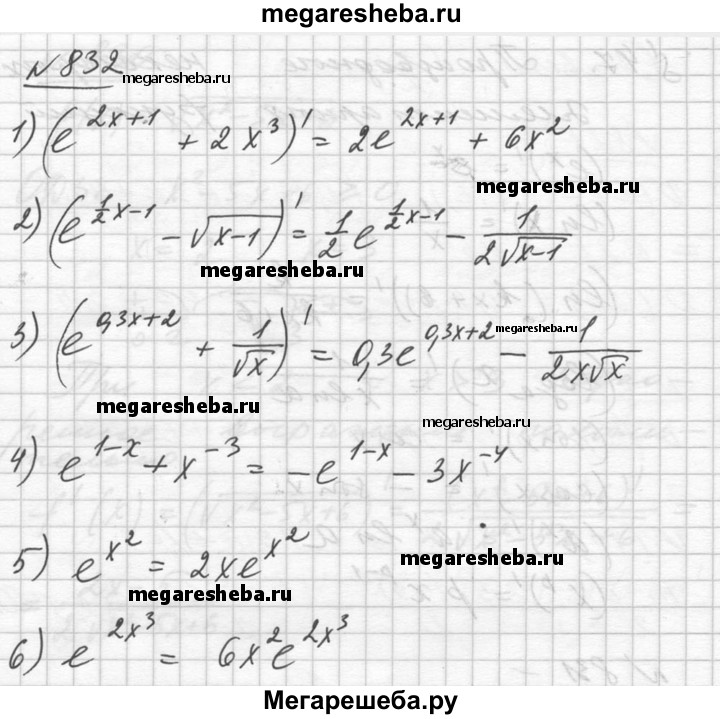 megaresheba.ru
№832 megaresheba.ru
1) (e^{2x+1} + 2x^3)' = 2e^{2x+1} + 6x^2
megaresheba.ru
2) (e^{\frac{1}{2}x-1} - √(x-1))' = \frac{1}{2}e^{\frac{1}{2}x-1} - \frac{1}{2√(x-1)}
megaresheba.ru
3) (e^{0,3x+2} + \frac{1}{√x})' = 0,3e^{0,3x+2} - \frac{1}{2x√x}
megaresheba.ru
megaresheba.ru
megaresheba.ru
4) e^{1-x} + x^{-3} = -e^{1-x} - 3x^{-4}
5) e^{x^2} = 2xe^{x^2}
megaresheba.ru
megaresheba.ru
6) e^{2x^3} = 6x^2e^{2x^3}
Мегарешеба.ру